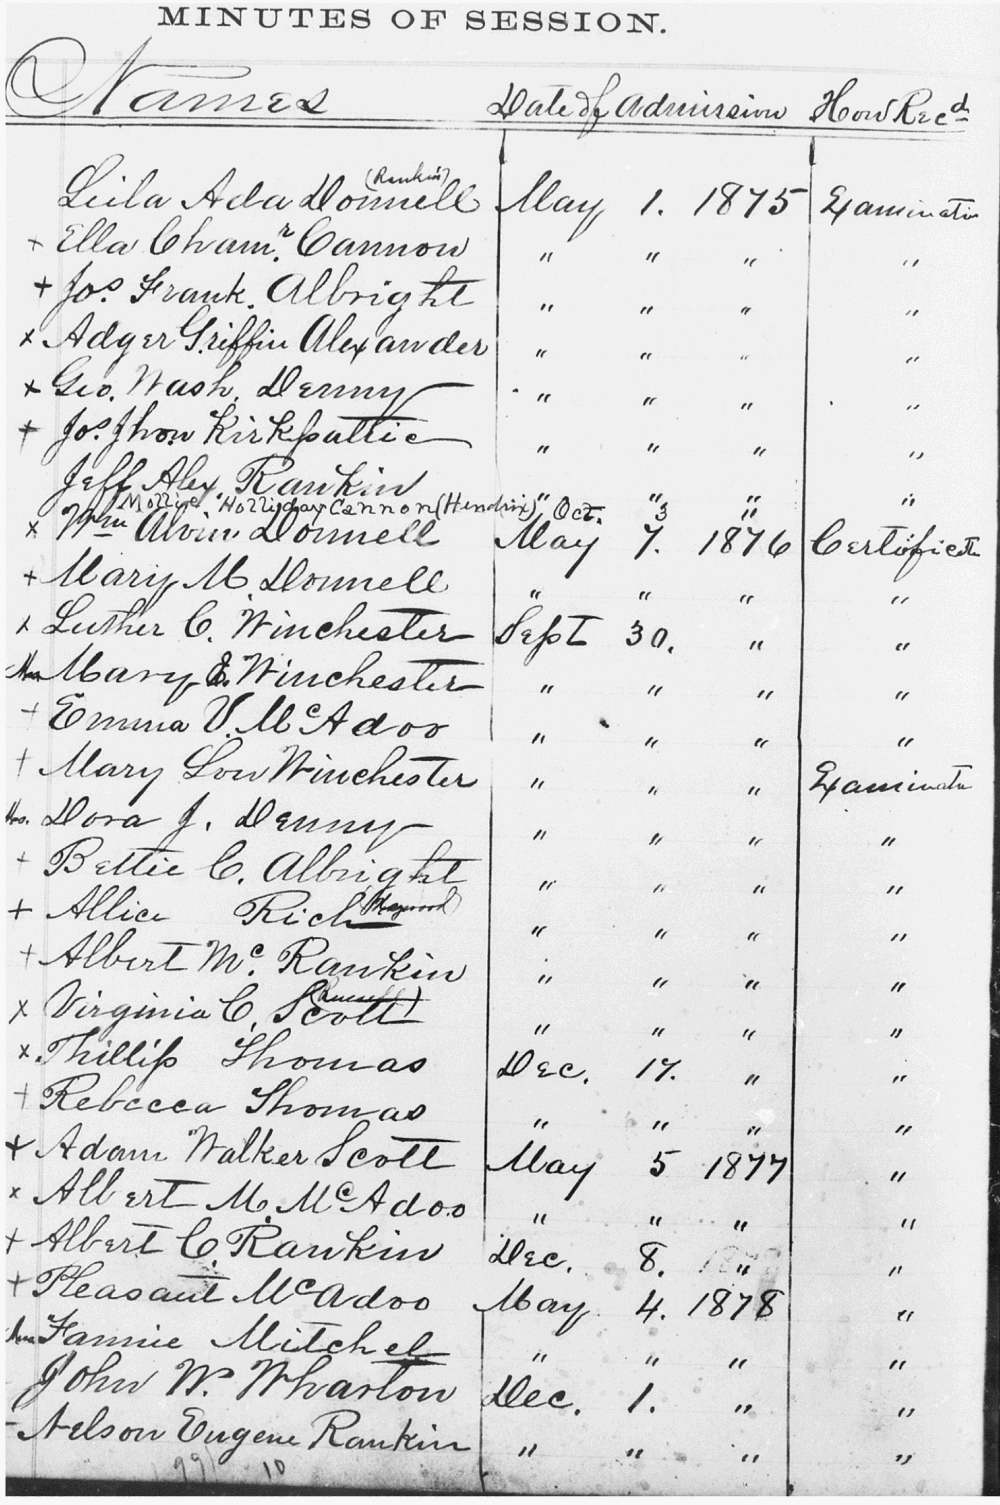 MINUTES OF SESSION.
Names Date of Admission How Recd
(Rankin)
Leila Ada Donnell May 1. 1875 Examinatin
+ Ella Chamr. Cannon " " " "
+ Jos. Frank. Albright " " " "
x Adger Griffin Alexander " " " "
x Geo. Wash. Denny " " " "
+ Jos. Jhon Kirkpatric " " " "
Jeff Alex. Rankin " " " "
Mollie Holliday Cannon (Hendrix) Oct. 3 "
x Wm Alvin Donnell May 7. 1876 Certificate
+ Mary M. Donnell " " " "
x Luther C. Winchester Sept 30. " "
Mrs Mary E. Winchester " " " "
+ Emma V. McAdoo " " " "
+ Mary Lou Winchester " " " Examinatn
Mrs. Dora J. Denny " " " "
+ Bettie C. Albright " " " "
+ Allice Rich " " " "
+ Albert Mc. Rankin " " " "
x Virginia C. Scott " " " "
x Thillip Thomas Dec. 17. " "
+ Rebecca Thomas " " " "
+ Adam Walker Scott May 5 1877 "
x Albert M. McAdoo " " " "
+ Albert C. Rankin Dec. 8. " "
+ Pleasant McAdoo May 4. 1878 "
Fannie Mitchel " " " "
John W. Wharton Dec. 1. " "
- Nelson Eugene Rankin " " " "
10